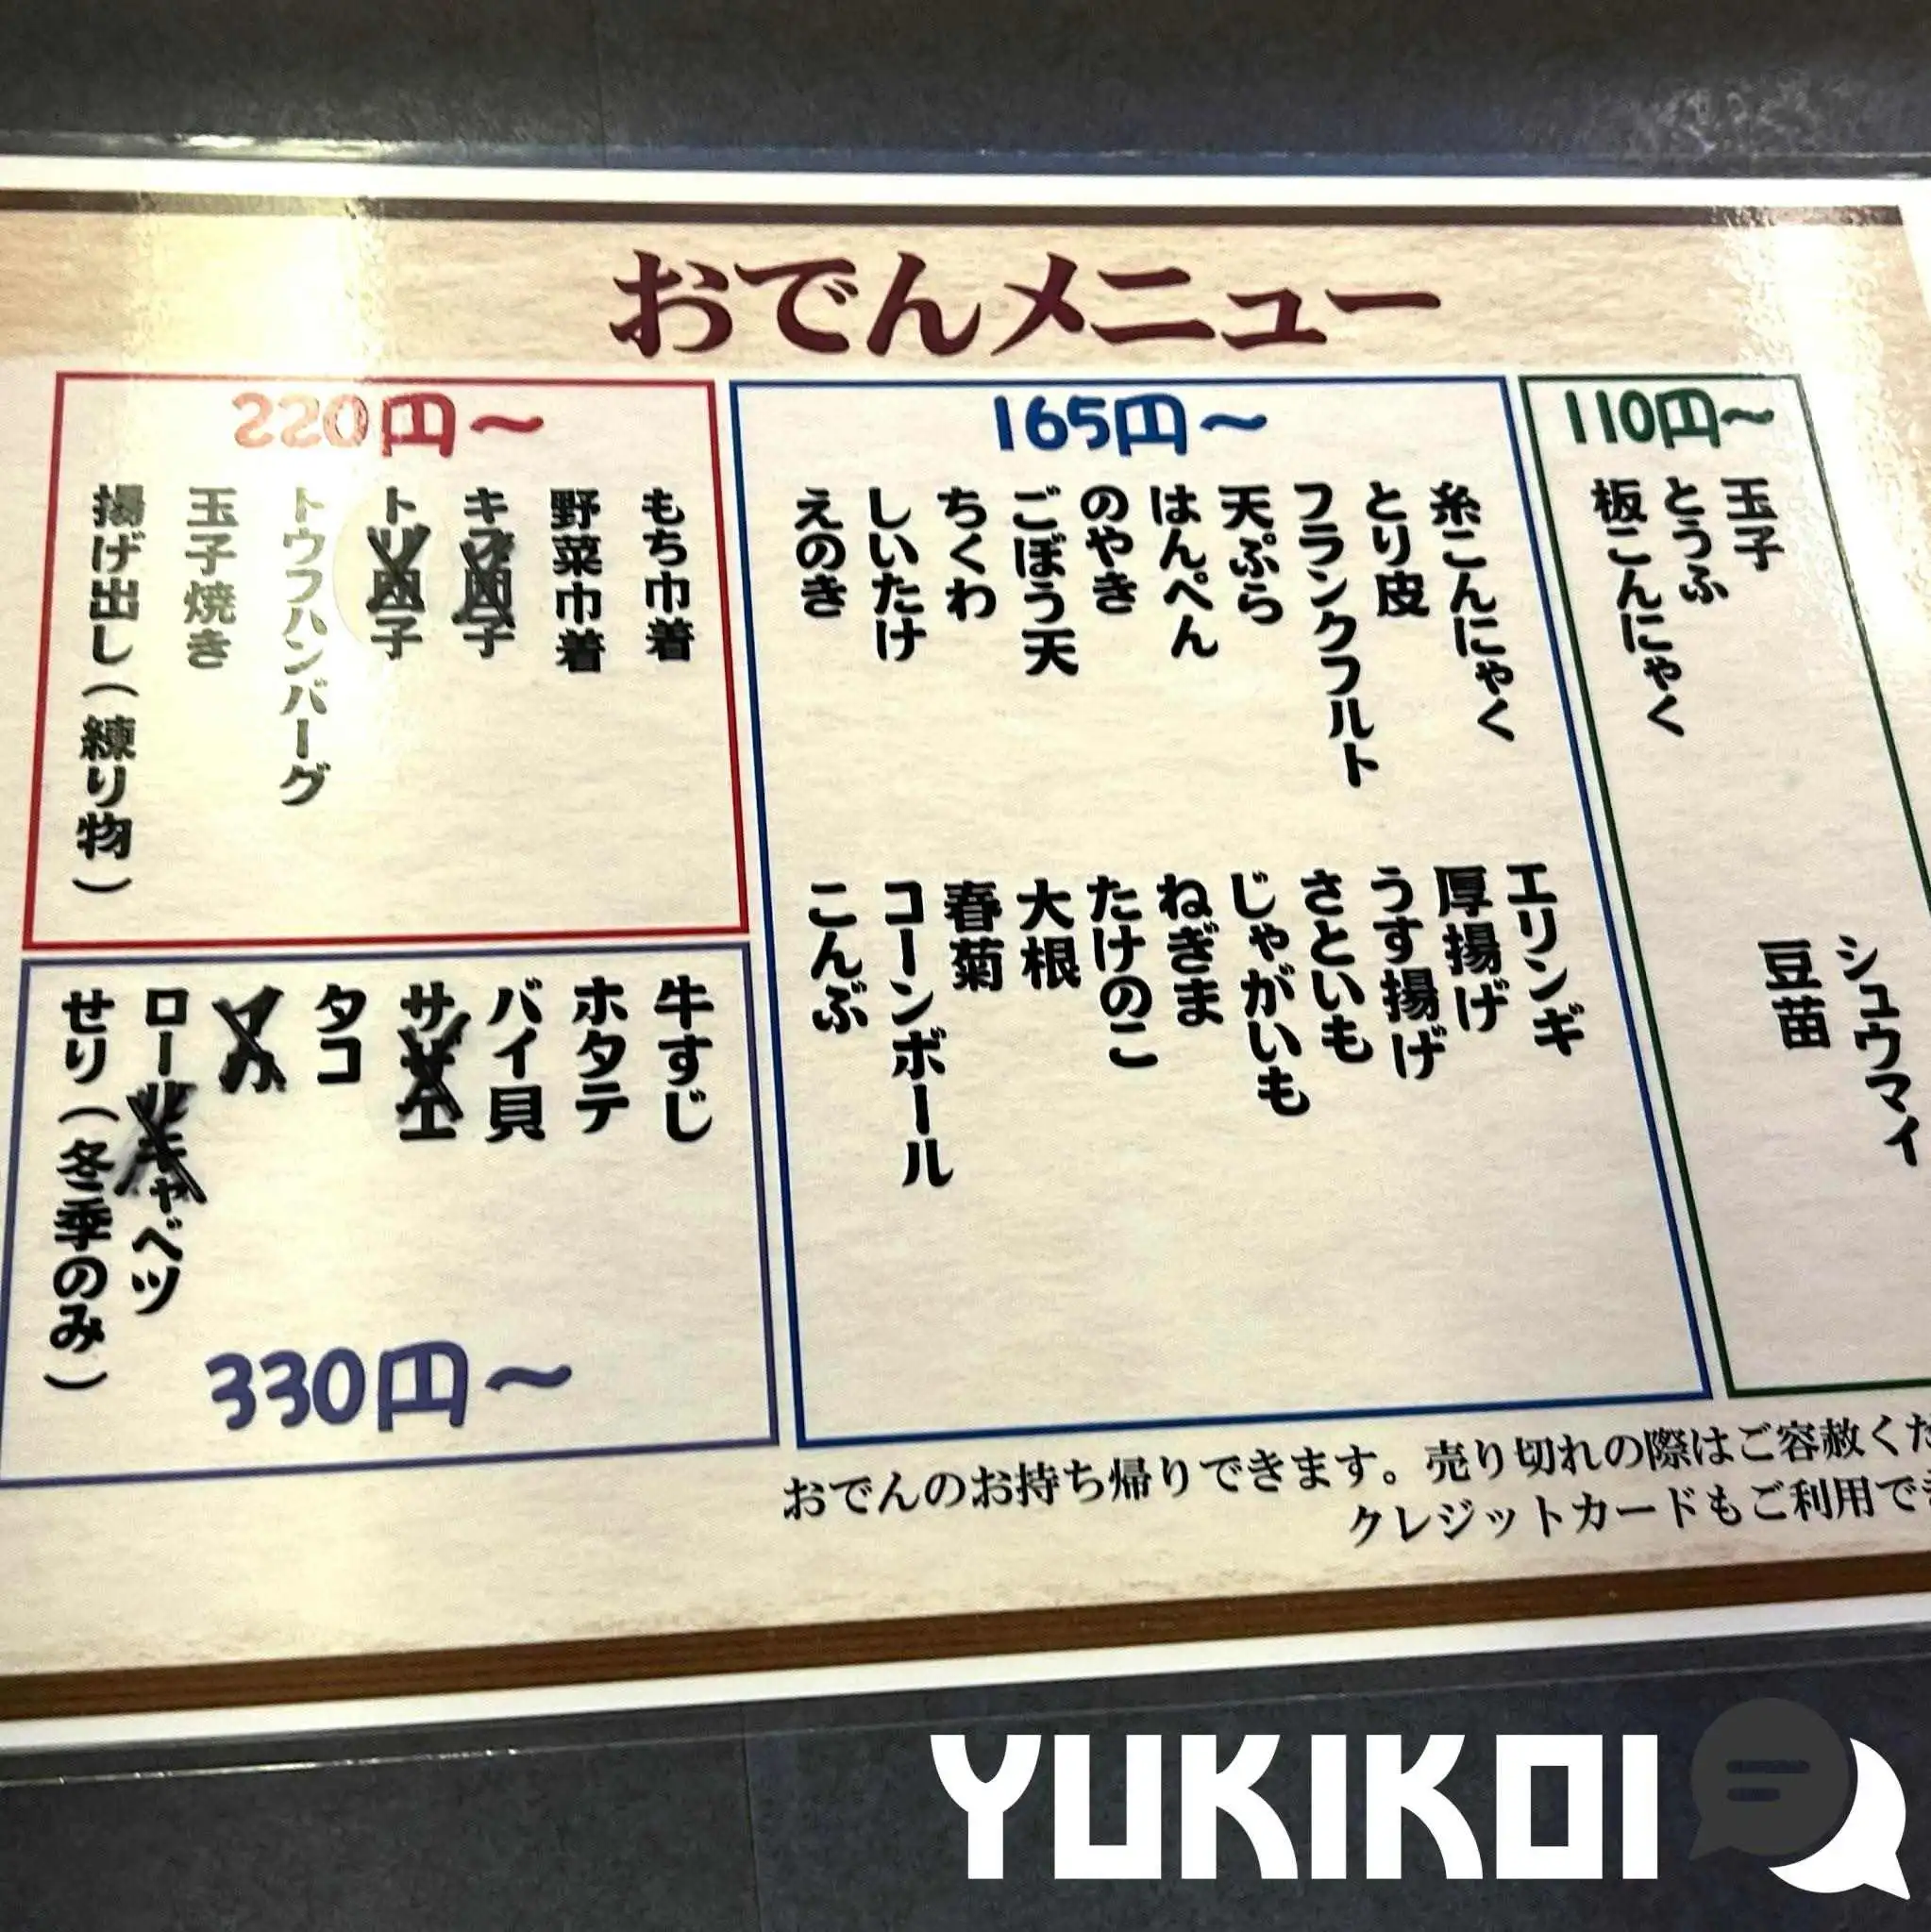 おでんメニュー
110円～
玉子
とうふ
板こんにゃく
シュウマイ
豆苗
165円～
糸こんにゃく
とり皮
フランクフルト
天ぷら
はんぺん
のやき
ごぼう天
ちくわ
しいたけ
えのき
エリンギ
厚揚げ
うす揚げ
さといも
じゃがいも
ねぎま
たけのこ
大根
春菊
コーンボール
こんぶ
220円～
もち巾着
野菜巾着
キ子
ト子
トウフハンバーグ
玉子焼き
揚げ出し（練り物）
牛すじ
ホタテ
バイ貝
サザエ
タコ
ロールキャベツ
せり（冬季のみ）
330円～
おでんのお持ち帰りできます。売り切れの際はご容赦くだ
クレジットカードもご利用でき
YUKIKOI